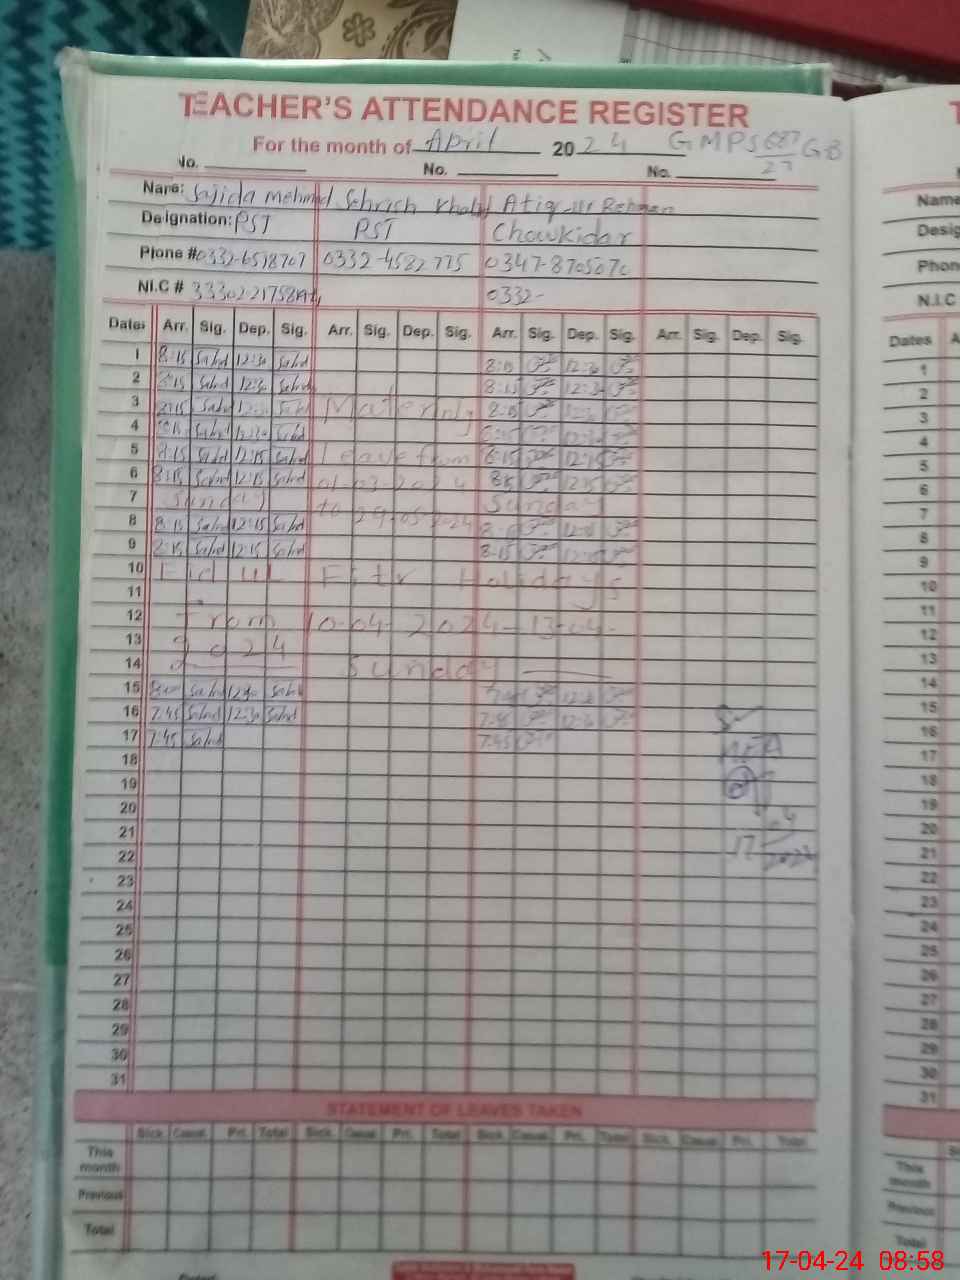 TEACHER'S ATTENDANCE REGISTER
For the month of April 2024 GMPS 687/27 GB
No. No. No.
Name: Sajida mehmod Sehrish Khalil Atiq-ur Rehman
Designation: PST PST Chowkidar
Phone # 0332-6518707 0332-4582775 0347-870507c
N.I.C # 33302-21758 0332-
Dates Arr. Sig. Dep. Sig. Arr. Sig. Dep. Sig. Arr. Sig. Dep. Sig. Arr. Sig. Dep. Sig.
1 8:15 Sahd 12:30 Sahd 8:15 12:30
2 8:15 Sahd 12:30 Sahd 8:15 12:30
3 8:15 Sahd 12:30 Sahd Maternity 8:15 12:30
4 8:15 Sahd 12:30 Sahd 8:15 12:30
5 8:15 Sahd 12:15 Sahd Leave from 8:15 12:15
6 8:15 Sahd 12:15 Sahd 01-03-2024 8:15 12:15
7 Sunday to 29-05-2024 Sunday
8 8:15 Sahd 12:15 Sahd 8:15 12:15
9 8:15 Sahd 12:15 Sahd 8:15 12:15
10 Eid UL Fitr Holidays
11
12 From 10-04-2024-13-04-
13 2024
14 Sunday
15 8:00 Sahd 12:30 Sahd 7:45 12:30
16 7:45 Sahd 12:30 Sahd 7:45 12:30
17 7:45 Sahd 7:45
18
19
20
21
22
23
24
25
26
27
28
29
30
31
MEA
17-04-2024
STATEMENT OF LEAVES TAKEN
Sick. Casual. Pri. Total Sick. Casual. Pri. Total Sick. Casual. Pri. Total Sick. Casual. Pri. Total
This month
Previous
Total
T
Name
Desig
Phon
N.I.C
Dates A
1
2
3
4
5
6
7
8
9
10
11
12
13
14
15
16
17
18
19
20
21
22
23
24
25
26
27
28
29
30
31
This month
Previous
Total
17-04-24 08:58